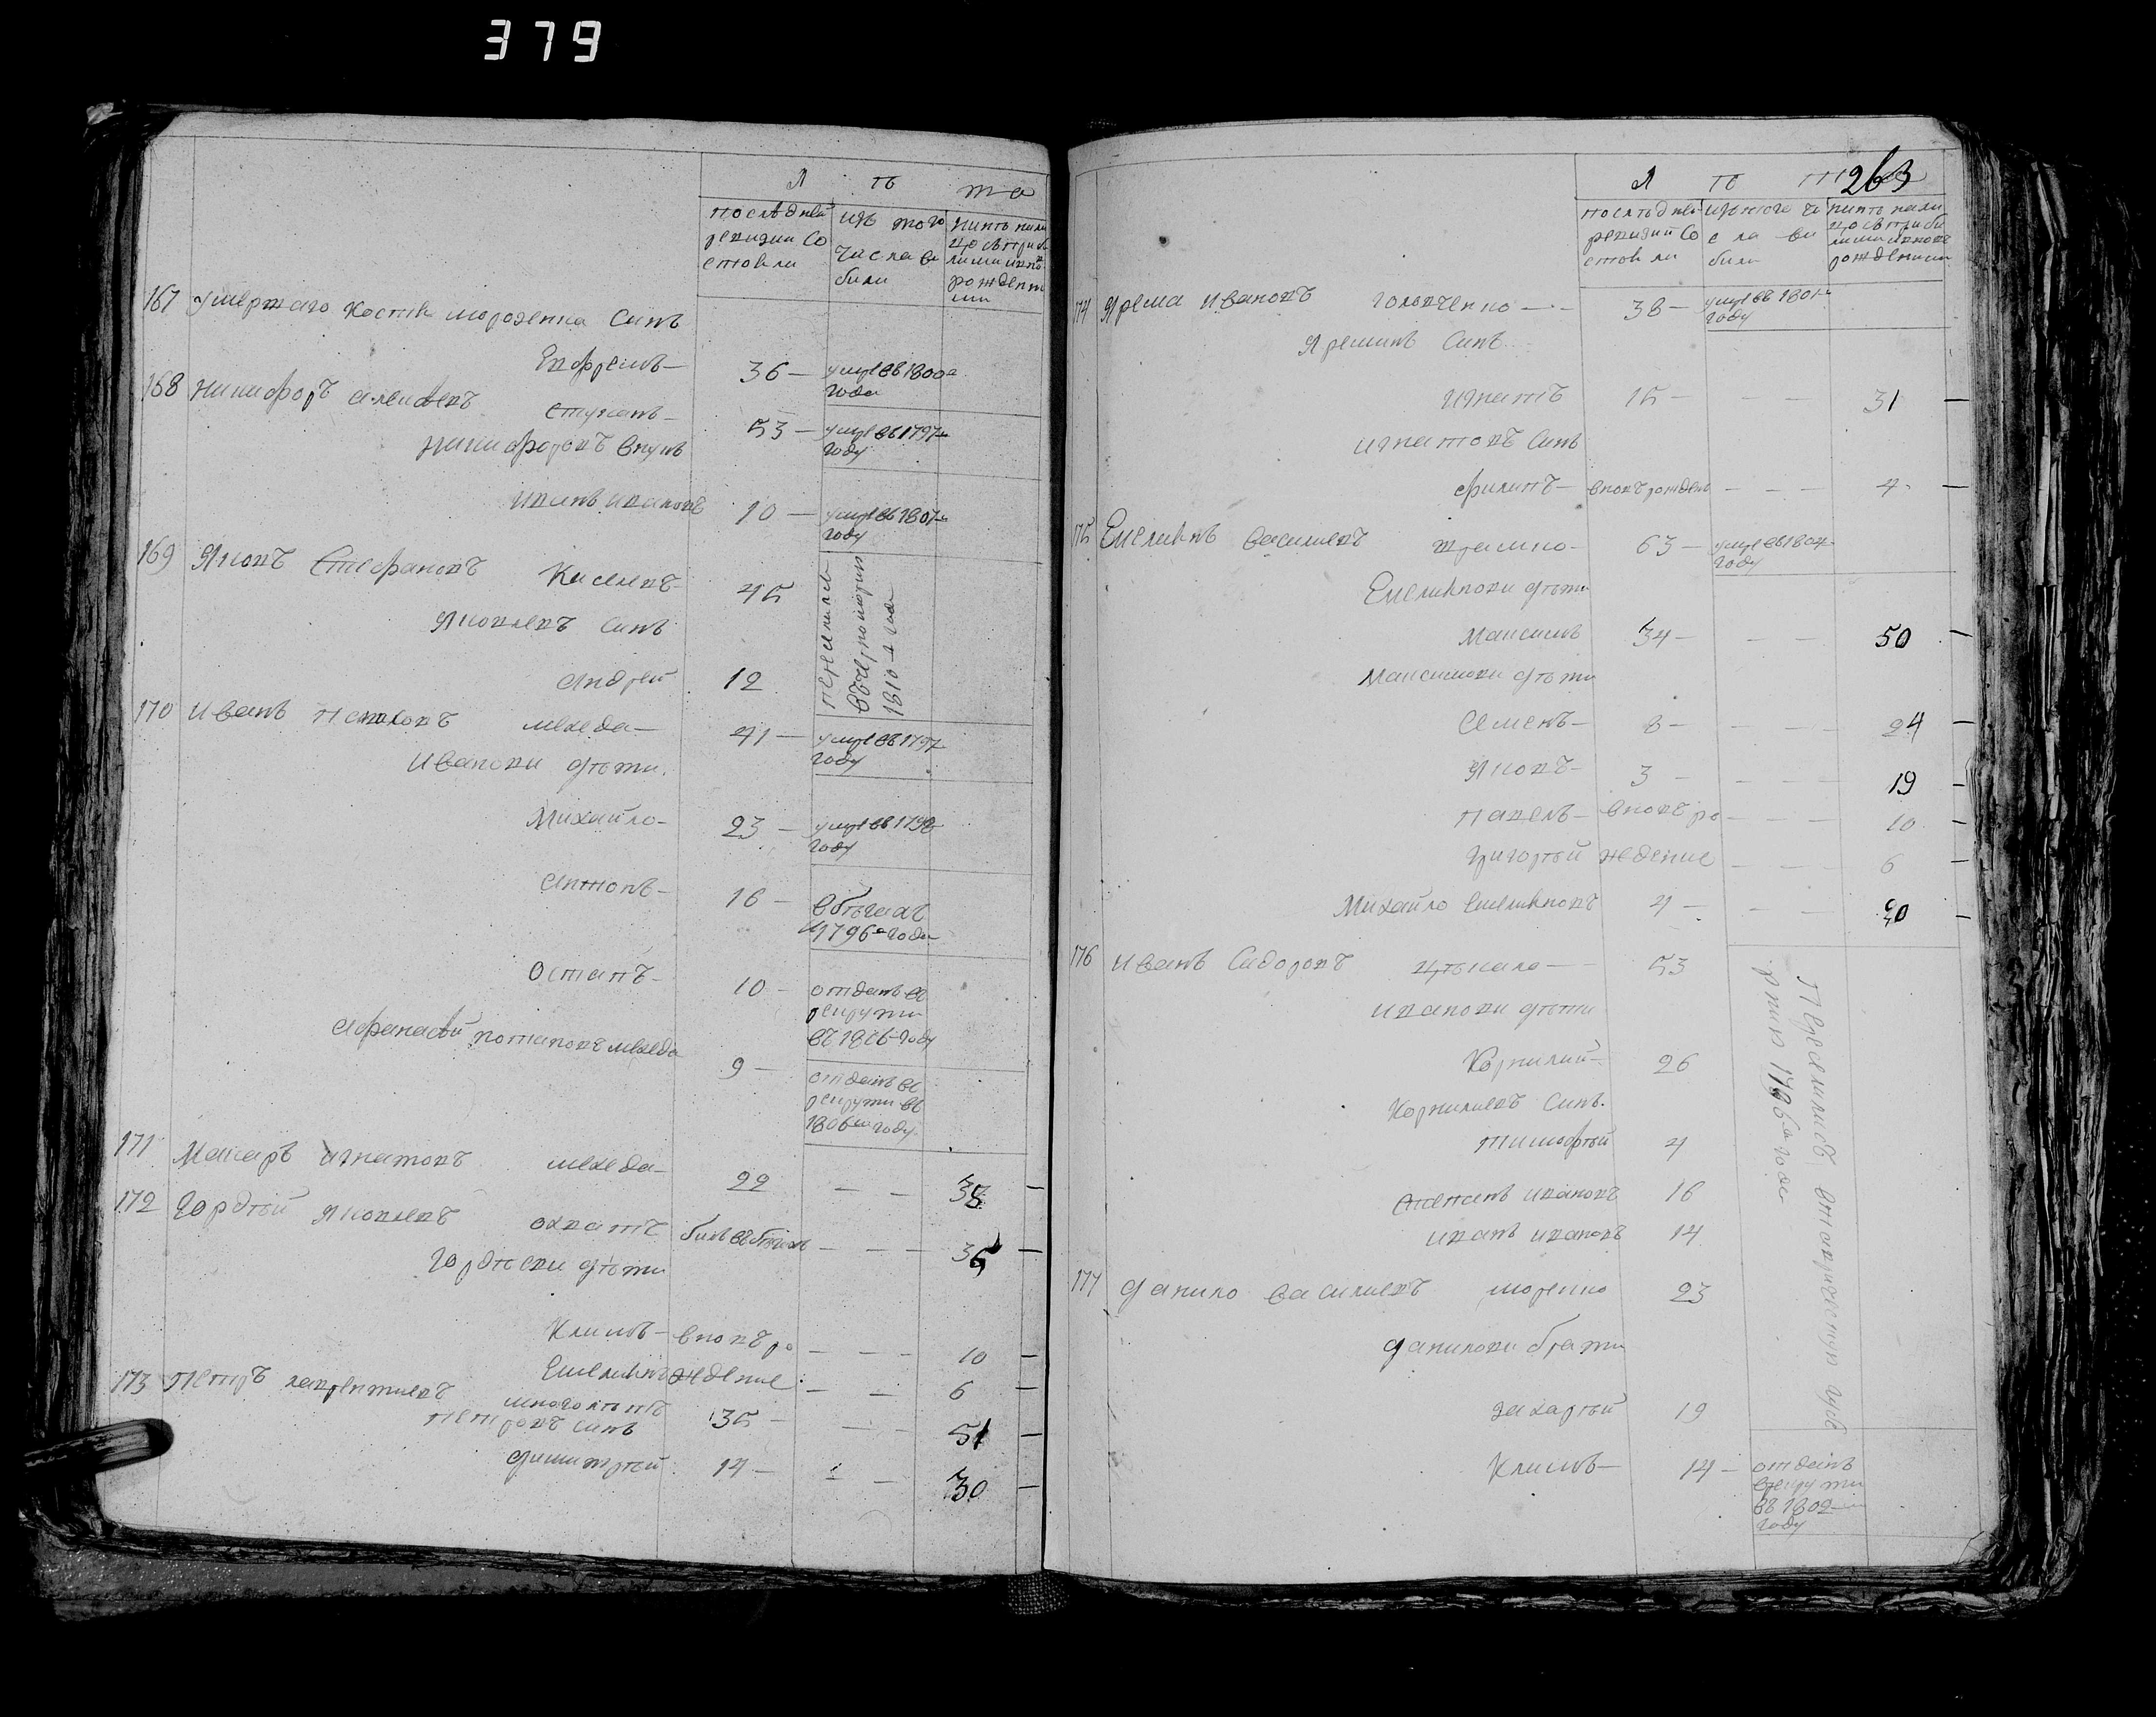 379
Л ѣ та
последней ревизии состояли
изъ того числа выбыли
ныне налицо съ прибылыми и вновь рожденными
167 умершаго Костя мороzенка Синъ
Ефремъ — 36 — умре въ 1800 года
168 Никифоръ Алексѣевъ стукачъ — 53 — умре въ 1797 году
Никифоровъ внукъ
Иванъ Ивановъ 10 — умре въ 1807 году
169 Яковъ Стефановъ Киселевъ 45
переселились 1810 года
Яковлевъ Синъ
Андрей 12
170 Иванъ мехеда — 41 — умре въ 1797 году
Ивановы дѣти
Михайло — 23 — умре въ 1798 году
Антонъ — 16 — в бѣгахъ 1796 года
Остапъ — 10 — отданъ въ рекруты въ 1806 году
Афанасѣй потаповъ мехеда 9 — отданъ въ рекруты въ 1806 году
171 Макаръ Игнатовъ мехеда — 22 — — 38 —
172 Гордѣй Яковлевъ былъ въ бѣгахъ — — — 36 —
Гордѣевы дѣти
Климъ — вновь ро — — — 10 —
Емельянъ ждение — — 6 —
173 Петръ лаврентиевъ многолѣтъ 35 — — — 51 —
Петровъ Синъ
Димитрѣй 14 — — — 30 —
263
Л ѣ т
последней ревизии состояли
изъ того числа выбыли
ныне налицо съ прибылыми и вновь рожденными
174 Ярема Ивановъ — 38 — умре въ 1801 году
Яреминъ Синъ
Игнатъ 15 — — — 31 —
Игнатовъ Синъ
Филипъ — вновь рожденъ — — — 4 —
175 Емельянъ Василиевъ — 63 — умре въ 1804 году
Емельяновы дѣти
Максимъ 34 — — — 50 —
Максимовы дѣти
Семенъ — 8 — — — — 24 —
Яковъ — 3 — — — — 19 —
Павелъ — вновь ро — — — 10 —
Григорѣй ждение — — — 6 —
Михайло Емельяновъ 4 — — — 20 —
176 Иванъ Сидоровъ — 53
Переселились 1796 года
Ивановы дѣти
Корнилий — 26
Корнилиевъ Синъ
Тимофѣй 4
Степанъ Ивановъ 16
Иванъ Ивановъ 14
177 Данило Василиевъ моренко 23
Даниловы браты
Захарѣй 19
Климъ — 14 — отданъ в рекруты въ 1802 году